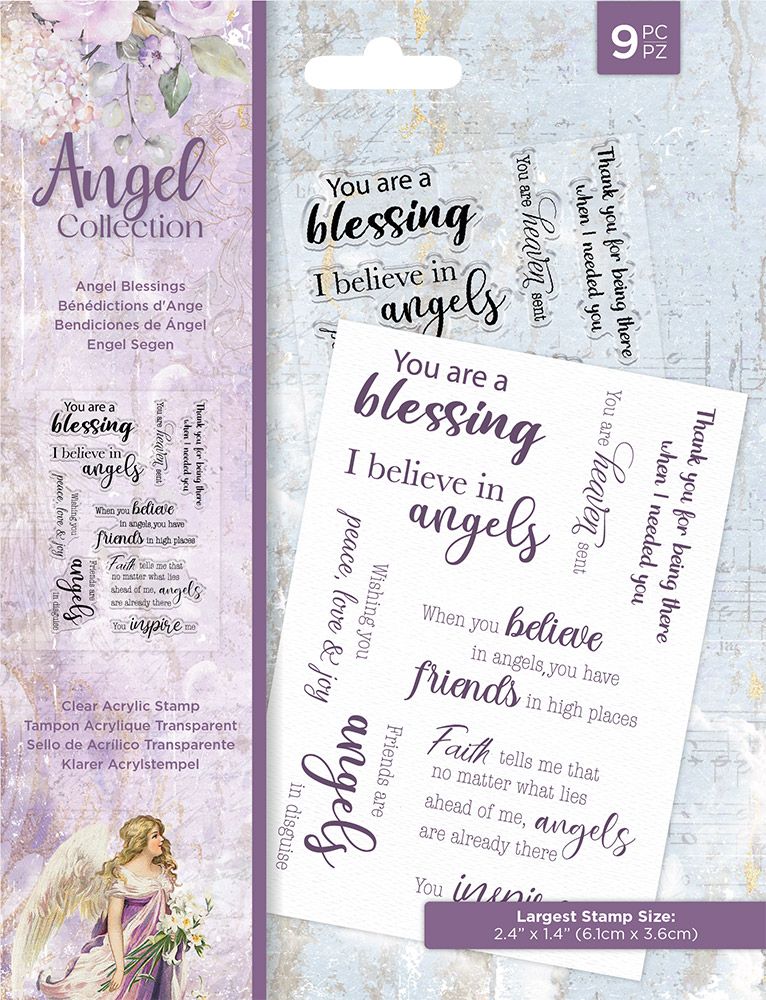 9 PC
PZ
Angel
Collection
Angel Blessings
Bénédictions d'Ange
Bendiciones de Ángel
Engel Segen
You are a
blessing
I believe in
angels
You are
heaven
sent
Thank you for being there
when I needed you
Wishing you
peace, love & joy
When you believe
in angels,you have
friends in high places
Friends are
angels
in disguise
Faith tells me that
no matter what lies
ahead of me, angels
are already there
You inspire me
Clear Acrylic Stamp
Tampon Acrylique Transparent
Sello de Acrílico Transparente
Klarer Acrylstempel
You are a
blessing
I believe in
angels
You are
heaven
sent
Thank you for being there
when I needed you
You are a
blessing
I believe in
angels
You are
heaven
sent
Thank you for being there
when I needed you
Wishing you
peace, love & joy
When you believe
in angels,you have
friends in high places
Friends are
angels
in disguise
Faith tells me that
no matter what lies
ahead of me, angels
are already there
You inspire
Largest Stamp Size:
2.4" x 1.4" (6.1cm x 3.6cm)